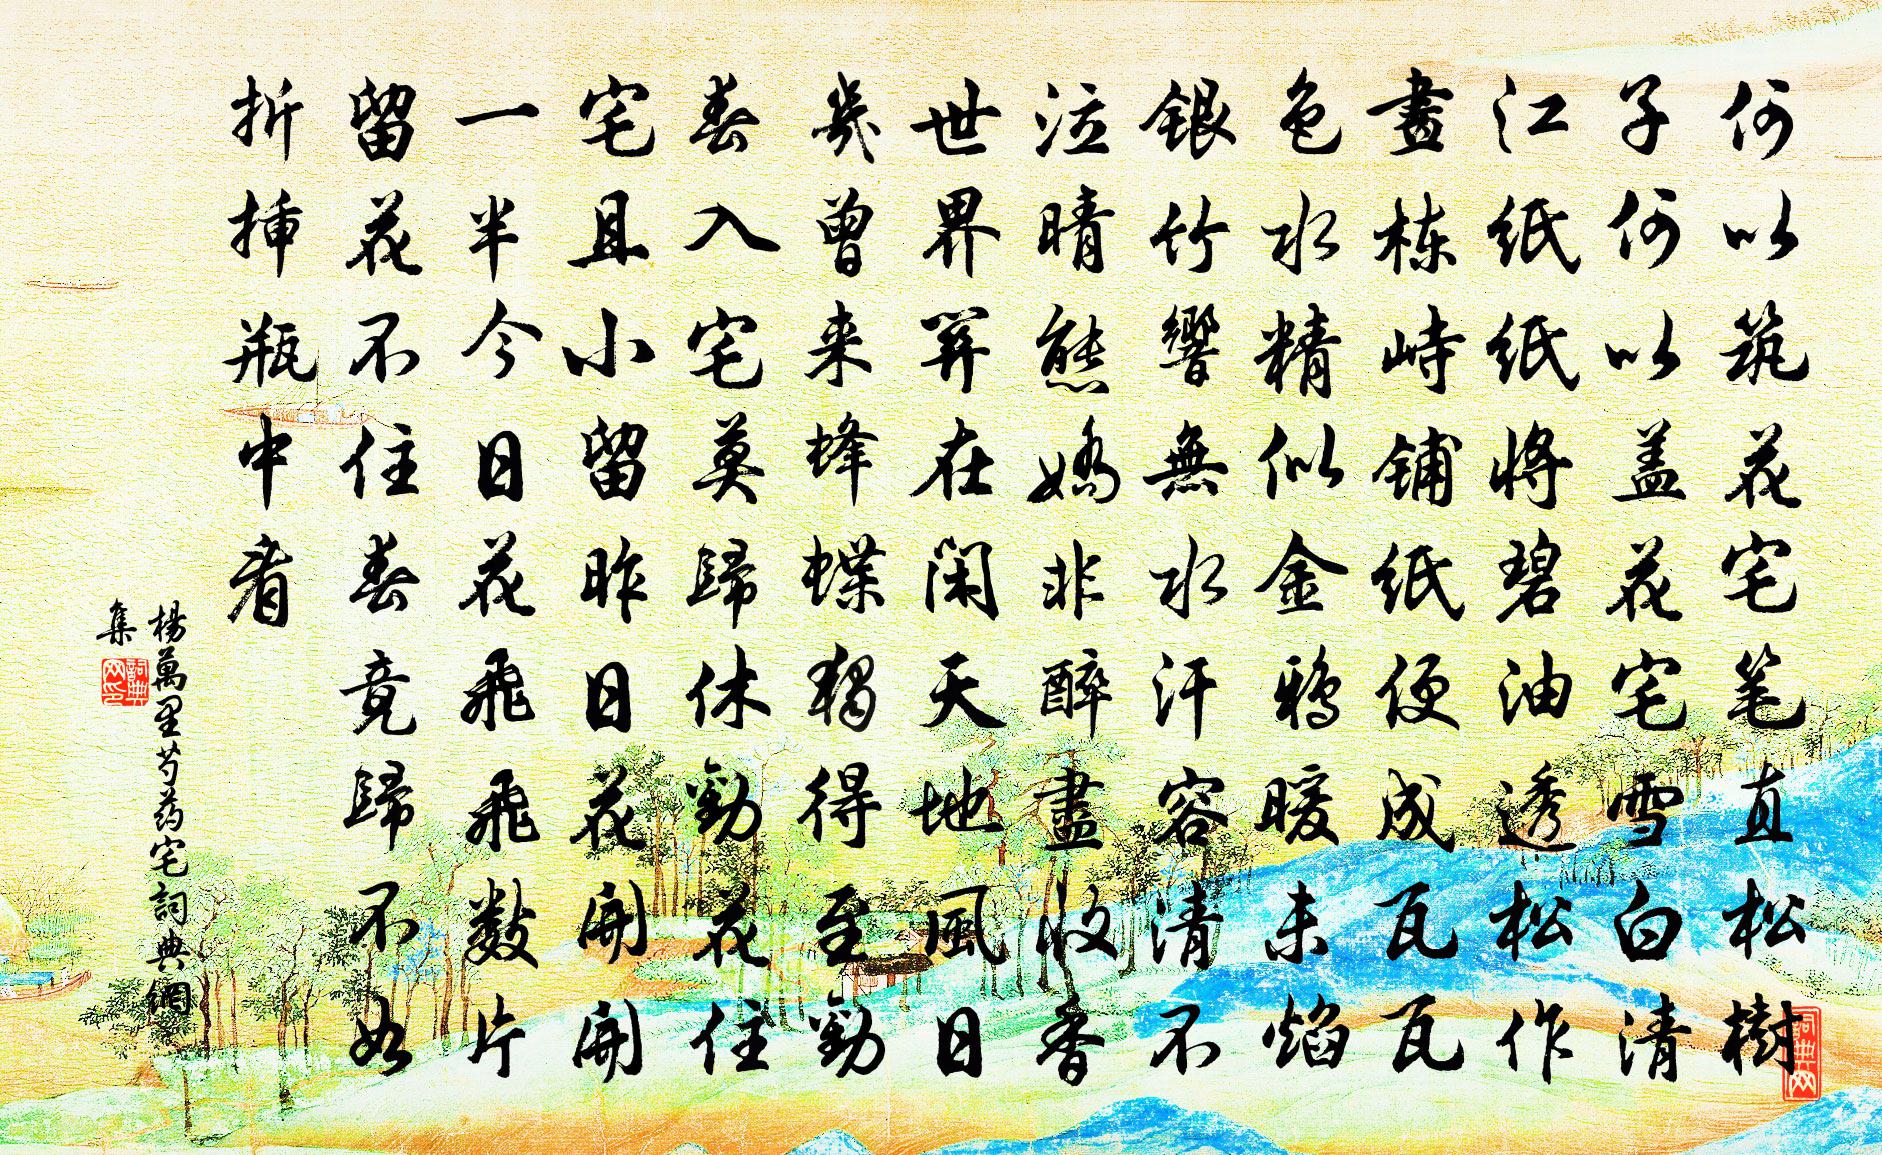 何以筑花宅笔直松樹
子何以盖花宅雪白清
江纸纸将碧油透松作
畫栋峙铺纸便成瓦瓦
色水精似金鸦暖未焰
银竹響無水汗容清不
泣晴態嬌非醉盡收香
世界笄在闲天地風日
幾曾来蜂蝶獨得至勸
春入宅莫歸休勸花住
宅且小留昨日花開開
一半今日花飛飛數片
留花不住春竟歸不如
折挿瓶中看
楊萬里芍药宅詞典網
集
詞典网印
詞典网